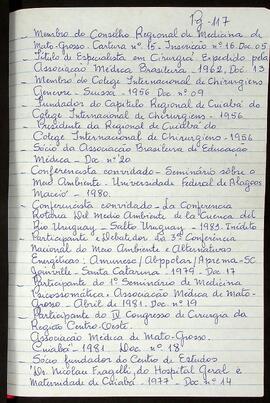 Pg-117
- Membro do Conselho Regional de Medicina de
Mato-Grosso. Carteira nº 15. Inscrição nº 16. Doc. 05
- Título de Especialista em Cirurgia Expedido pela
Associação Médica Brasileira - 1962, Doc. 13
- Membro do Colege Internacional de Chirurgiens
Genevre - Suissa - 1956 Doc nº 09
- Fundador do Capitulo Regional de Cuiabá do
Colege Internacional de Chirurgiens - 1956.
- Presidente da Regional de Cuiabá do
Colege Internacional de Chirurgiens - 1956
- Sócio da Associação Brasileira de Educação
Médica - Doc nº 20
- Conferencista convidado - Seminário sobre o
Meio Ambiente - Universidade Federal de Alagoas
Mació - 1980.
- Conferencista convidado - La Conferencia
Rotaria Del Medio Ambiente de la Cuenca del
Rio Uruguay - Salto Uruguay - 1981. Inédito
- Participante e Debatedor da 3ª Conferência
Nacional do Meio Ambiente e Alternativas
Energéticas: Amunesc/Abppolar/Aprema-SC
Joinville - Santa Catarina - 1979 - Doc. 17
- Participante do 1º Seminário de Medicina
Psicossomática: Associação Médica de Mato-
Grosso. - Abril de 1981. Doc nº 19
- Participante do IV Congresso de Cirurgia da
Região Centro-Oeste.
Associação Médica de Mato-Grosso.
Cuiabá - 1981 Doc. nº 18
- Sócio fundador do Centro de Estudos
"Dr. Nicolau Fragelli, do Hospital Geral e
Maternidade de Cuiabá - 1977 - Doc nº 14